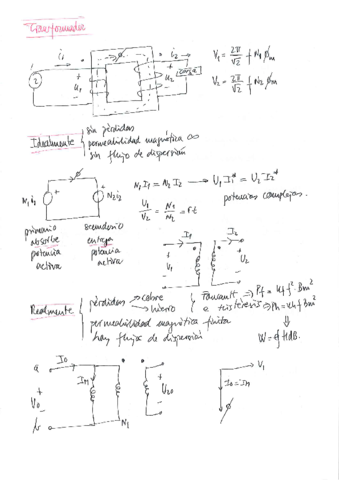 Transformador
i1 φ i2
2 u1 u2 carga
V1 = 2π/√2 f N1 φm
V2 = 2π/√2 f N2 φm
Idealmente
sin pérdidas
permeabilidad magnética ∞
sin flujo de dispersión
φ
N1i1 N2i2
N1I1 = N2I2 → U1I1* = U2I2*
potencias complejas.
V1/V2 = N1/N2 = rt
primario absorbe potencia activa
secundario entrega potencia activa
I1 I2
V1 U2
Realmente
pérdidas → cobre
→ hierro
Foucault ⇒ Pf = Kf f² Bm²
e histéresis ⇒ Ph = Kh f Bm²
permeabilidad magnética finita
hay flujos de dispersión
W = ∮ HdB.
a I0
V0 IM U20
b N1
V1
I0 = IM
φ